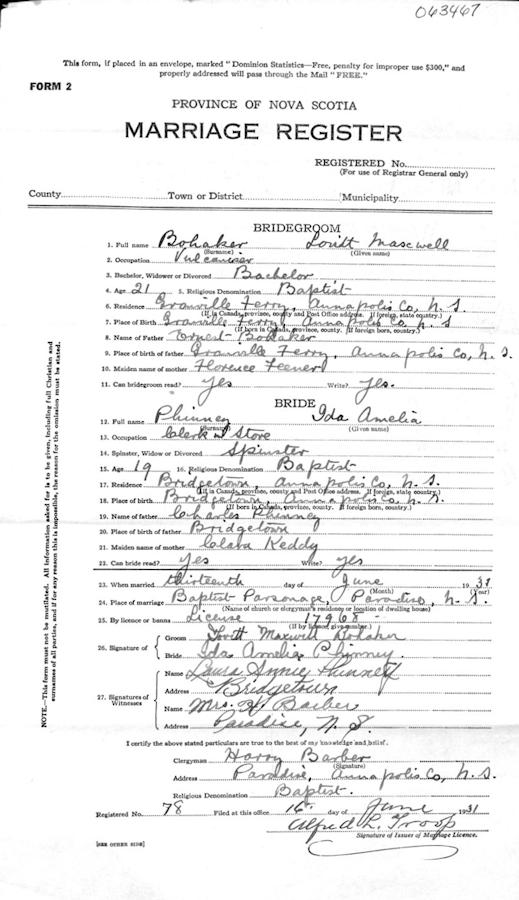 063467
This form, if placed in an envelope, marked "Dominion Statistics—Free, penalty for improper use $300," and
properly addressed will pass through the Mail "FREE."
FORM 2
PROVINCE OF NOVA SCOTIA
MARRIAGE REGISTER
REGISTERED No.
(For use of Registrar General only)
County Town or District Municipality
BRIDEGROOM
1. Full name Bohaker Lovitt Maxwell
(Surname) (Given name)
2. Occupation Vulcanizer
3. Bachelor, Widower or Divorced Bachelor
4. Age 21 5. Religious Denomination Baptist
6. Residence Granville Ferry, Annapolis Co, N. S.
(If in Canada, province, county and Post Office address. If foreign, state country.)
7. Place of Birth Granville Ferry, Annapolis Co, N. S
(If born in Canada, province, county. If foreign, state country.)
8. Name of Father Ernest Bohaker
9. Place of birth of father Granville Ferry, Annapolis Co, N. S.
10. Maiden name of mother Florence
11. Can bridegroom read? Yes Write? Yes.
BRIDE
12. Full name Phinney Ida Amelia
(Surname) (Given name)
13. Occupation Clerk in Store
14. Spinster, Widow or Divorced Spinster
15. Age 19 16. Religious Denomination Baptist
17. Residence Bridgetown, Annapolis Co, N. S.
(If in Canada, province, county and Post Office address. If foreign, state country.)
18. Place of birth Bridgetown, Annapolis Co. N. S.
(If born in Canada, province, county. If foreign, state country.)
19. Name of father Charles Phinney
20. Place of birth of father Bridgetown
21. Maiden name of mother Clara Keddy
22. Can bride read? Yes Write? Yes
23. When married thirteenth day of June 1931
(Month) (Year)
24. Place of marriage Baptist Parsonage, Paradise, N. S.
(Name of church or clergyman's residence or location of dwelling house)
25. By licence or banns License 17968
(If by licence give number.)
26. Signature of
Groom Lovitt Maxwell Bohaker
Bride Ida Amelia Phinney
27. Signatures of Witnesses
Name Laura Annie Phinney
Address Bridgetown
Name Mrs. H. Barber
Address Paradise, N. S.
I certify the above stated particulars are true to the best of my knowledge and belief.
Clergyman Harry Barber
(Signature)
Address Paradise, Annapolis Co, N. S.
Religious Denomination Baptist.
Registered No. 78 Filed at this office 16th day of June 1931
Alfred L. Troop
Signature of Issuer of Marriage Licence.
[SEE OTHER SIDE]
NOTE.—This form must not be mutilated. All information asked for is to be given, including full Christian and
surnames of all parties, and if for any reason this is impossible, the reason for the omission must be stated.